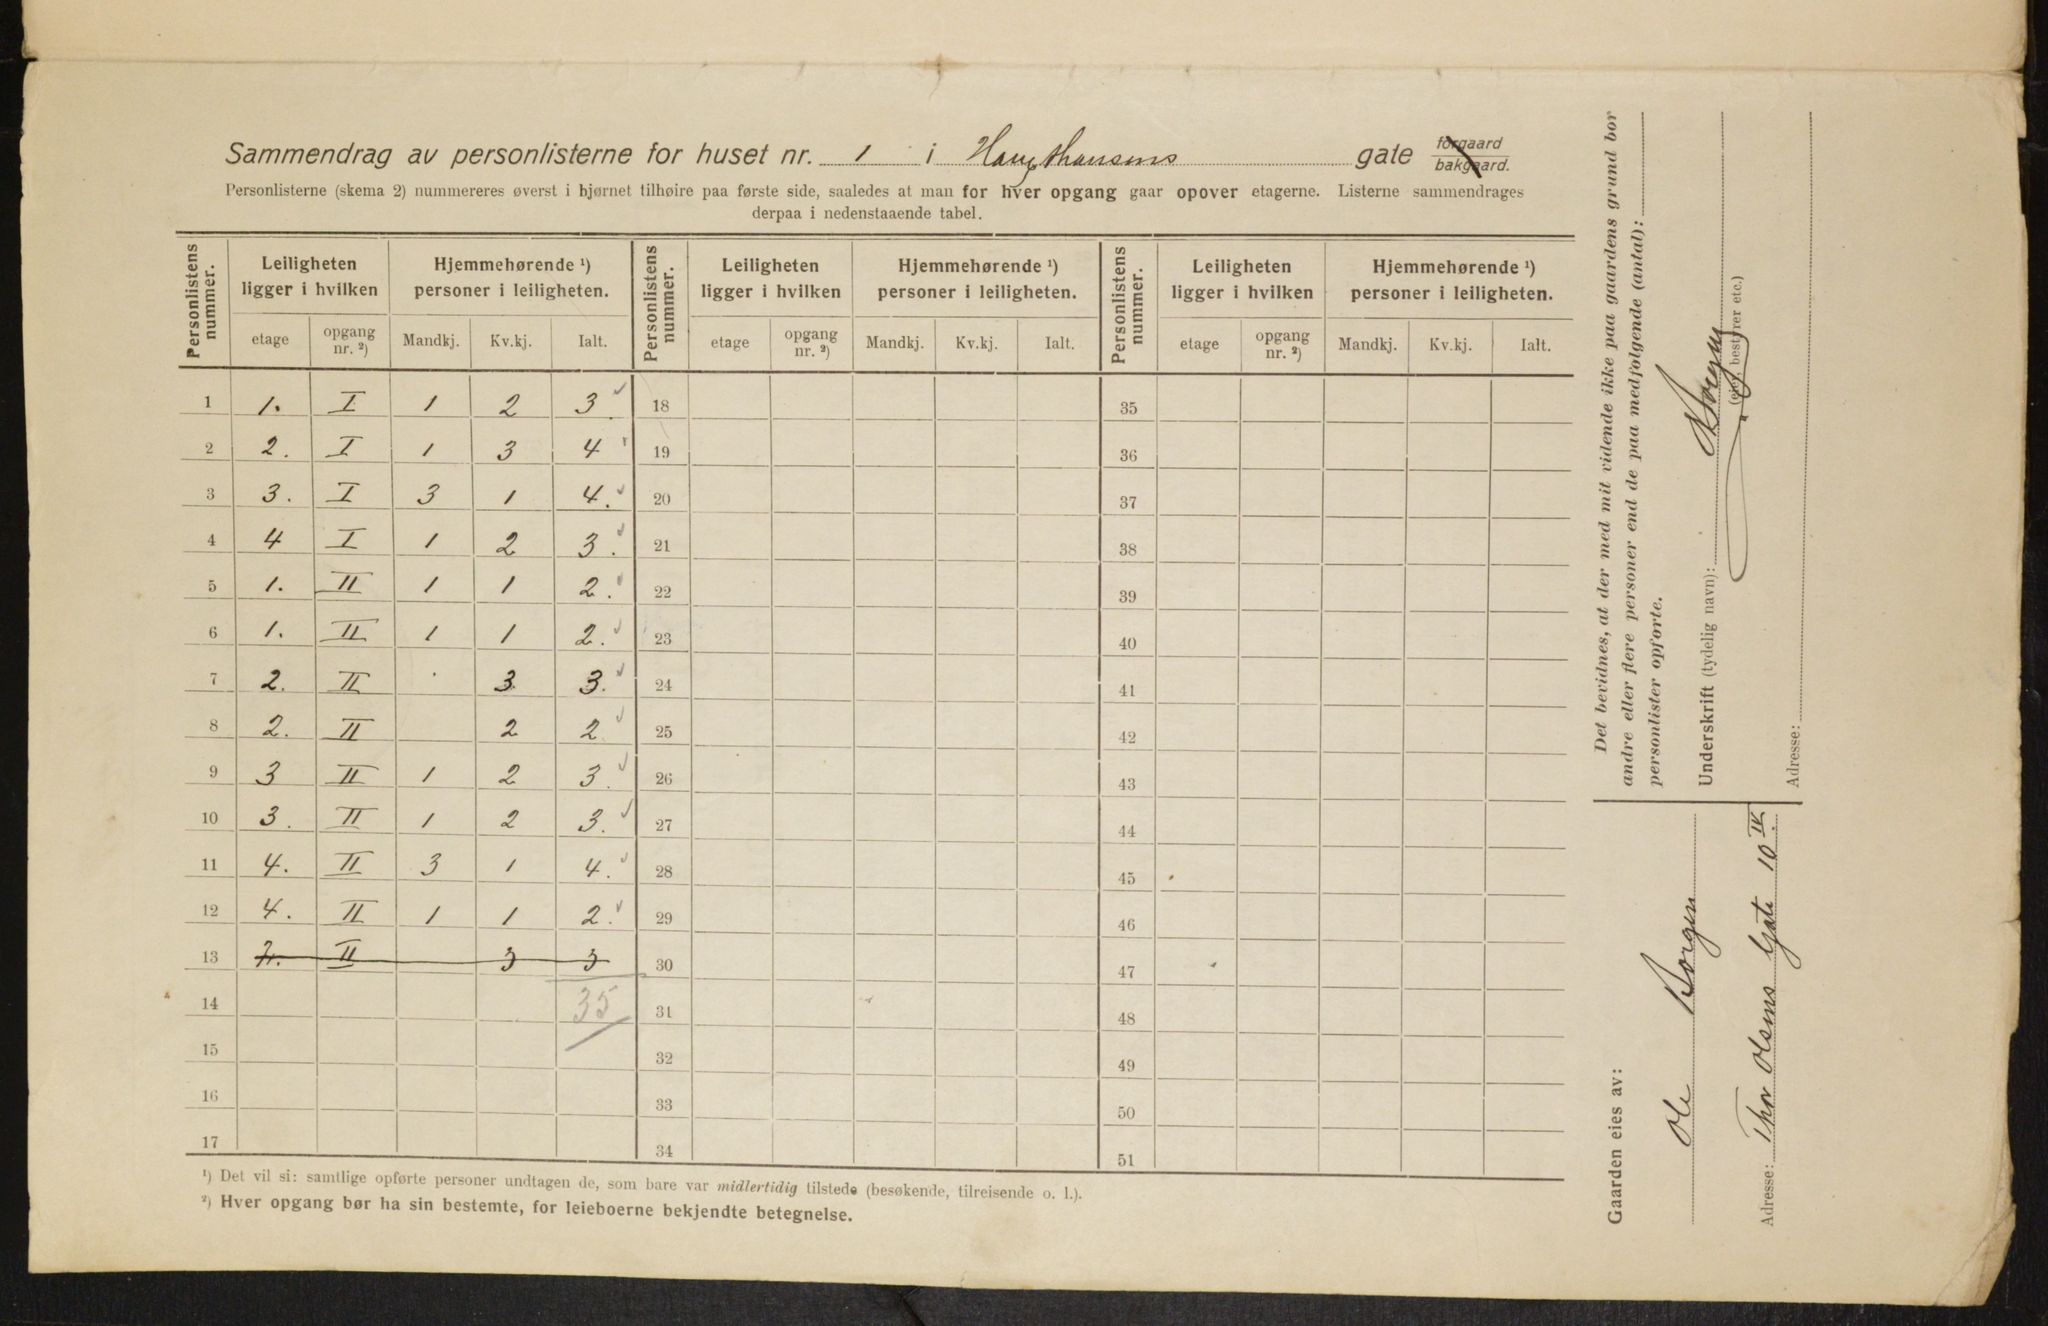 Sammendrag av personlisterne for huset nr. 1 i Haugthansens gate forgaard bakgaard.
Personlisterne (skema 2) nummereres øverst i hjørnet tilhøire paa første side, saaledes at man for hver opgang gaar opover etagerne. Listerne sammendrages
derpaa i nedenstaaende tabel.
Personlistens nummer. Leiligheten ligger i hvilken Hjemmehørende ¹) personer i leiligheten. Personlistens nummer. Leiligheten ligger i hvilken Hjemmehørende ¹) personer i leiligheten. Personlistens nummer. Leiligheten ligger i hvilken Hjemmehørende ¹) personer i leiligheten.
etage opgang nr. ²) Mandkj. Kv.kj. Ialt. etage opgang nr. ²) Mandkj. Kv.kj. Ialt. etage opgang nr. ²) Mandkj. Kv.kj. Ialt.
1 1. I 1 2 3. 18 35
2 2. I 1 3 4 19 36
3 3. I 3 1 4. 20 37
4 4 I 1 2 3. 21 38
5 1. II 1 1 2. 22 39
6 1. II 1 1 2. 23 40
7 2. II 3 3. 24 41
8 2. II 2 2 25 42
9 3 II 1 2 3. 26 43
10 3. II 1 2 3. 27 44
11 4. II 3 1 4. 28 45
12 4. II 1 1 2. 29 46
13 II 3 3 30 47
14 35 31 48
15 32 49
16 33 50
17 34 51
¹) Det vil si: samtlige opførte personer undtagen de, som bare var midlertidig tilstede (besøkende, tilreisende o. l.).
²) Hver opgang bør ha sin bestemte, for leieboerne bekjendte betegnelse.
Det bevidnes, at der med mit vidende ikke paa gaardens grund bor
andre eller flere personer end de paa medfølgende (antal):
personlister opførte.
Underskrift (tydelig navn): Borgen
(eier, bestyrer etc.)
Adresse:
Gaarden eies av:
Ole Borgen
Adresse: Thor Olsens Gate 10 IV.